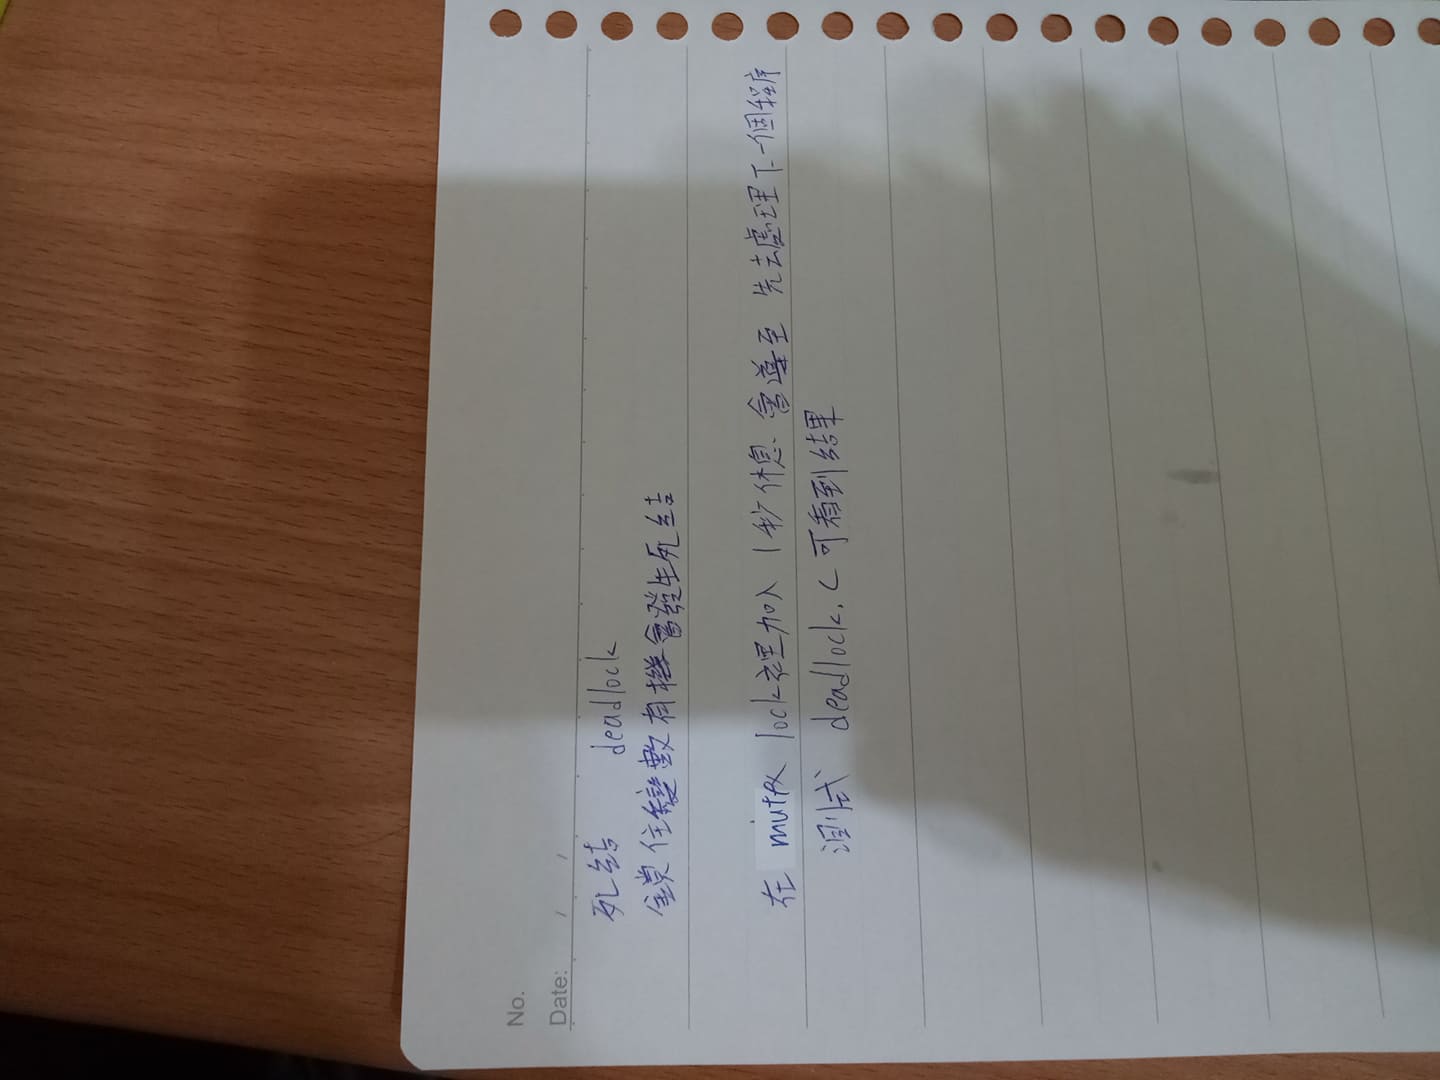 No.
Date: / /
死結 deadlock
鎖住變數有機會發生死結
在 mutex lock裡加入 1秒休息 會導至 先去處理下一個程序
測式 deadlock.c 可看到結果